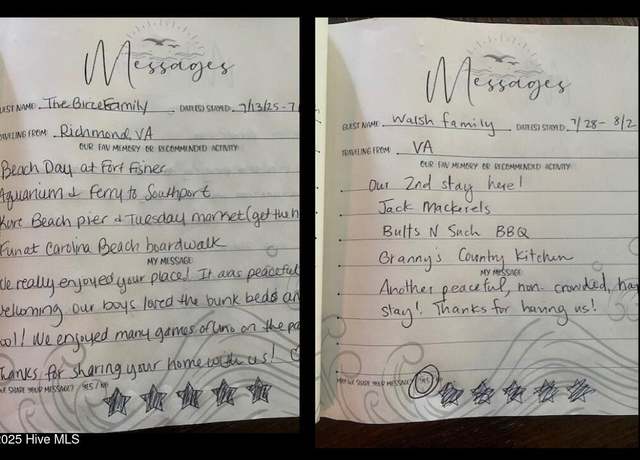 Messages
GUEST NAME: The Birce Family DATE(S) STAYED: 7/13/25 - 7
TRAVELING FROM: Richmond, VA
OUR FAV MEMORY OR RECOMMENDED ACTIVITY:
Beach Day at Fort Fisher
Aquarium & Ferry to Southport
Kure Beach pier & Tuesday market (get the h
Fun at Carolina Beach boardwalk
MY MESSAGE:
We really enjoyed your place! It was peaceful
welcoming. our boys loved the bunk beds an
ool! We enjoyed many games of uno on the pa
Thanks for sharing your home with us!
MAY WE SHARE YOUR MESSAGE? YES / NO
Messages
GUEST NAME: Walsh family DATE(S) STAYED: 7/28 - 8/2
TRAVELING FROM: VA
OUR FAV MEMORY OR RECOMMENDED ACTIVITY:
Our 2nd stay here!
Jack Mackerels
Butts N Such BBQ
Granny's Country Kitchen
MY MESSAGE:
Another peaceful, non-crowded, ha
stay! Thanks for having us!
MAY WE SHARE YOUR MESSAGE? YES
2025 Hive MLS